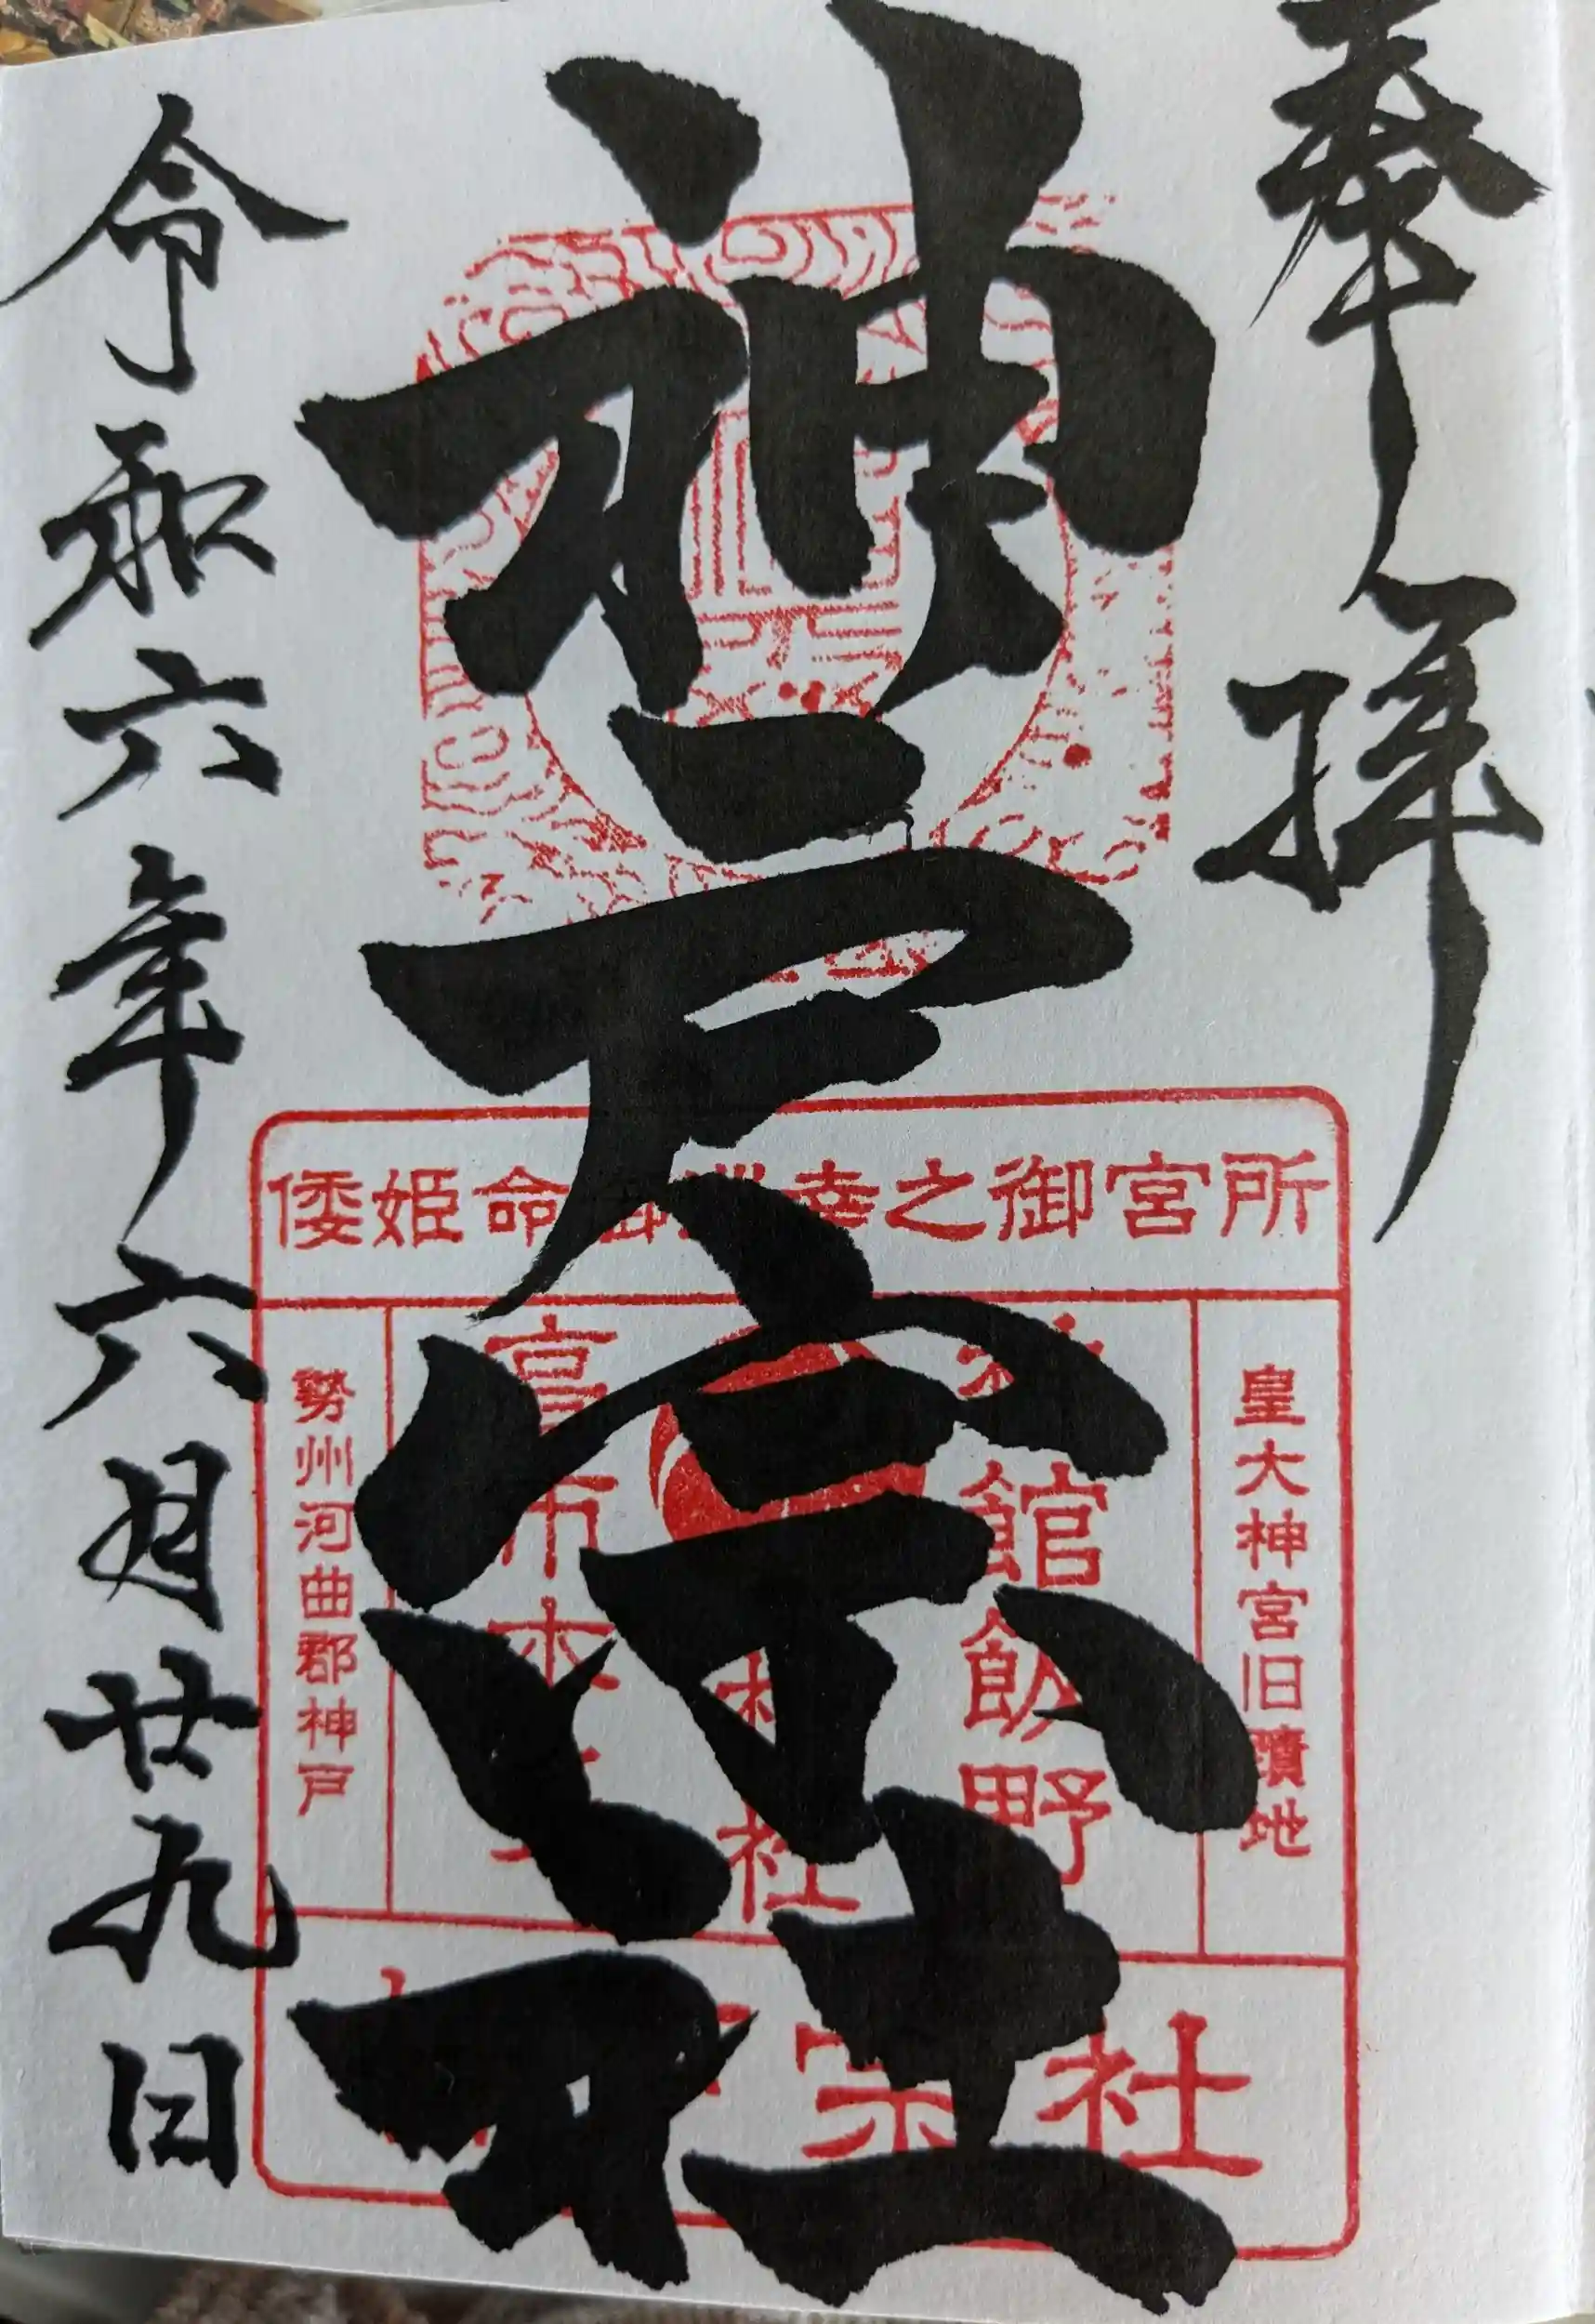 奉拝
神戸宗社
令和六年六月廿九日
倭姫命御巡幸之御宮所
皇大神宮旧蹟地
館飯野
社
勢州河曲郡神戸
宗社